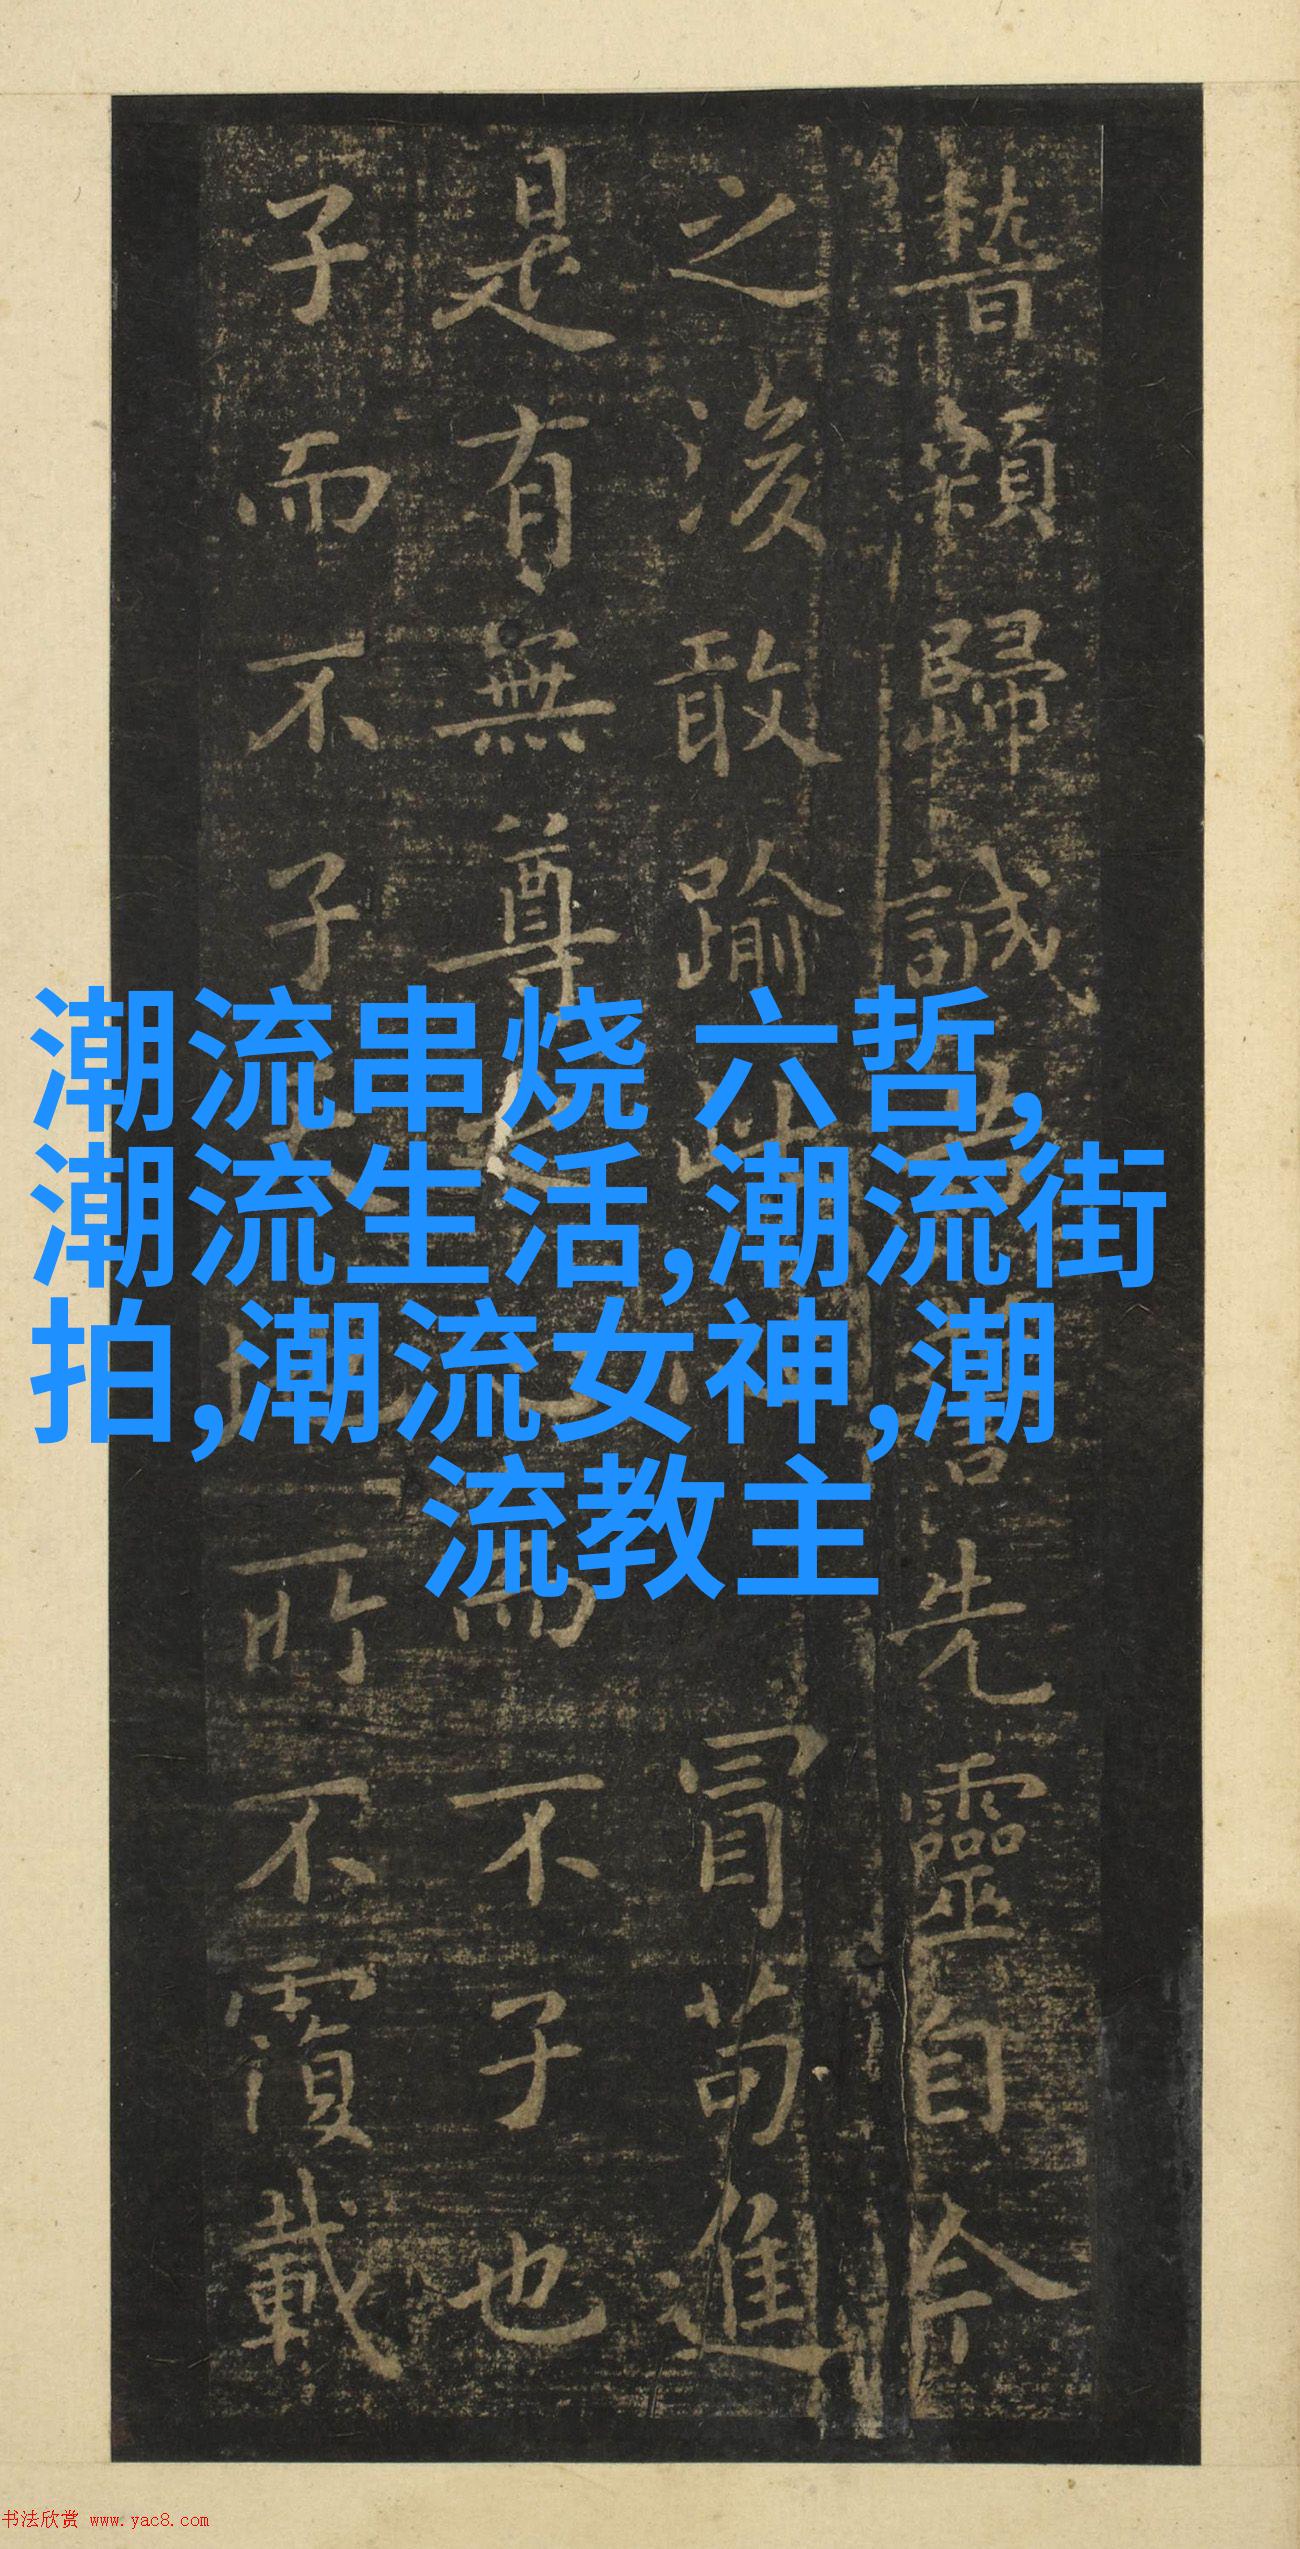 潮流串烧 六哲,
潮流生活,潮流街
拍,潮流女神,潮
流教主
稽顙歸誠先靈自今
之後敢踰此冒苟進
是有無尊而不子也
子而不子所不覆載
书法欣赏 www.yac8.com